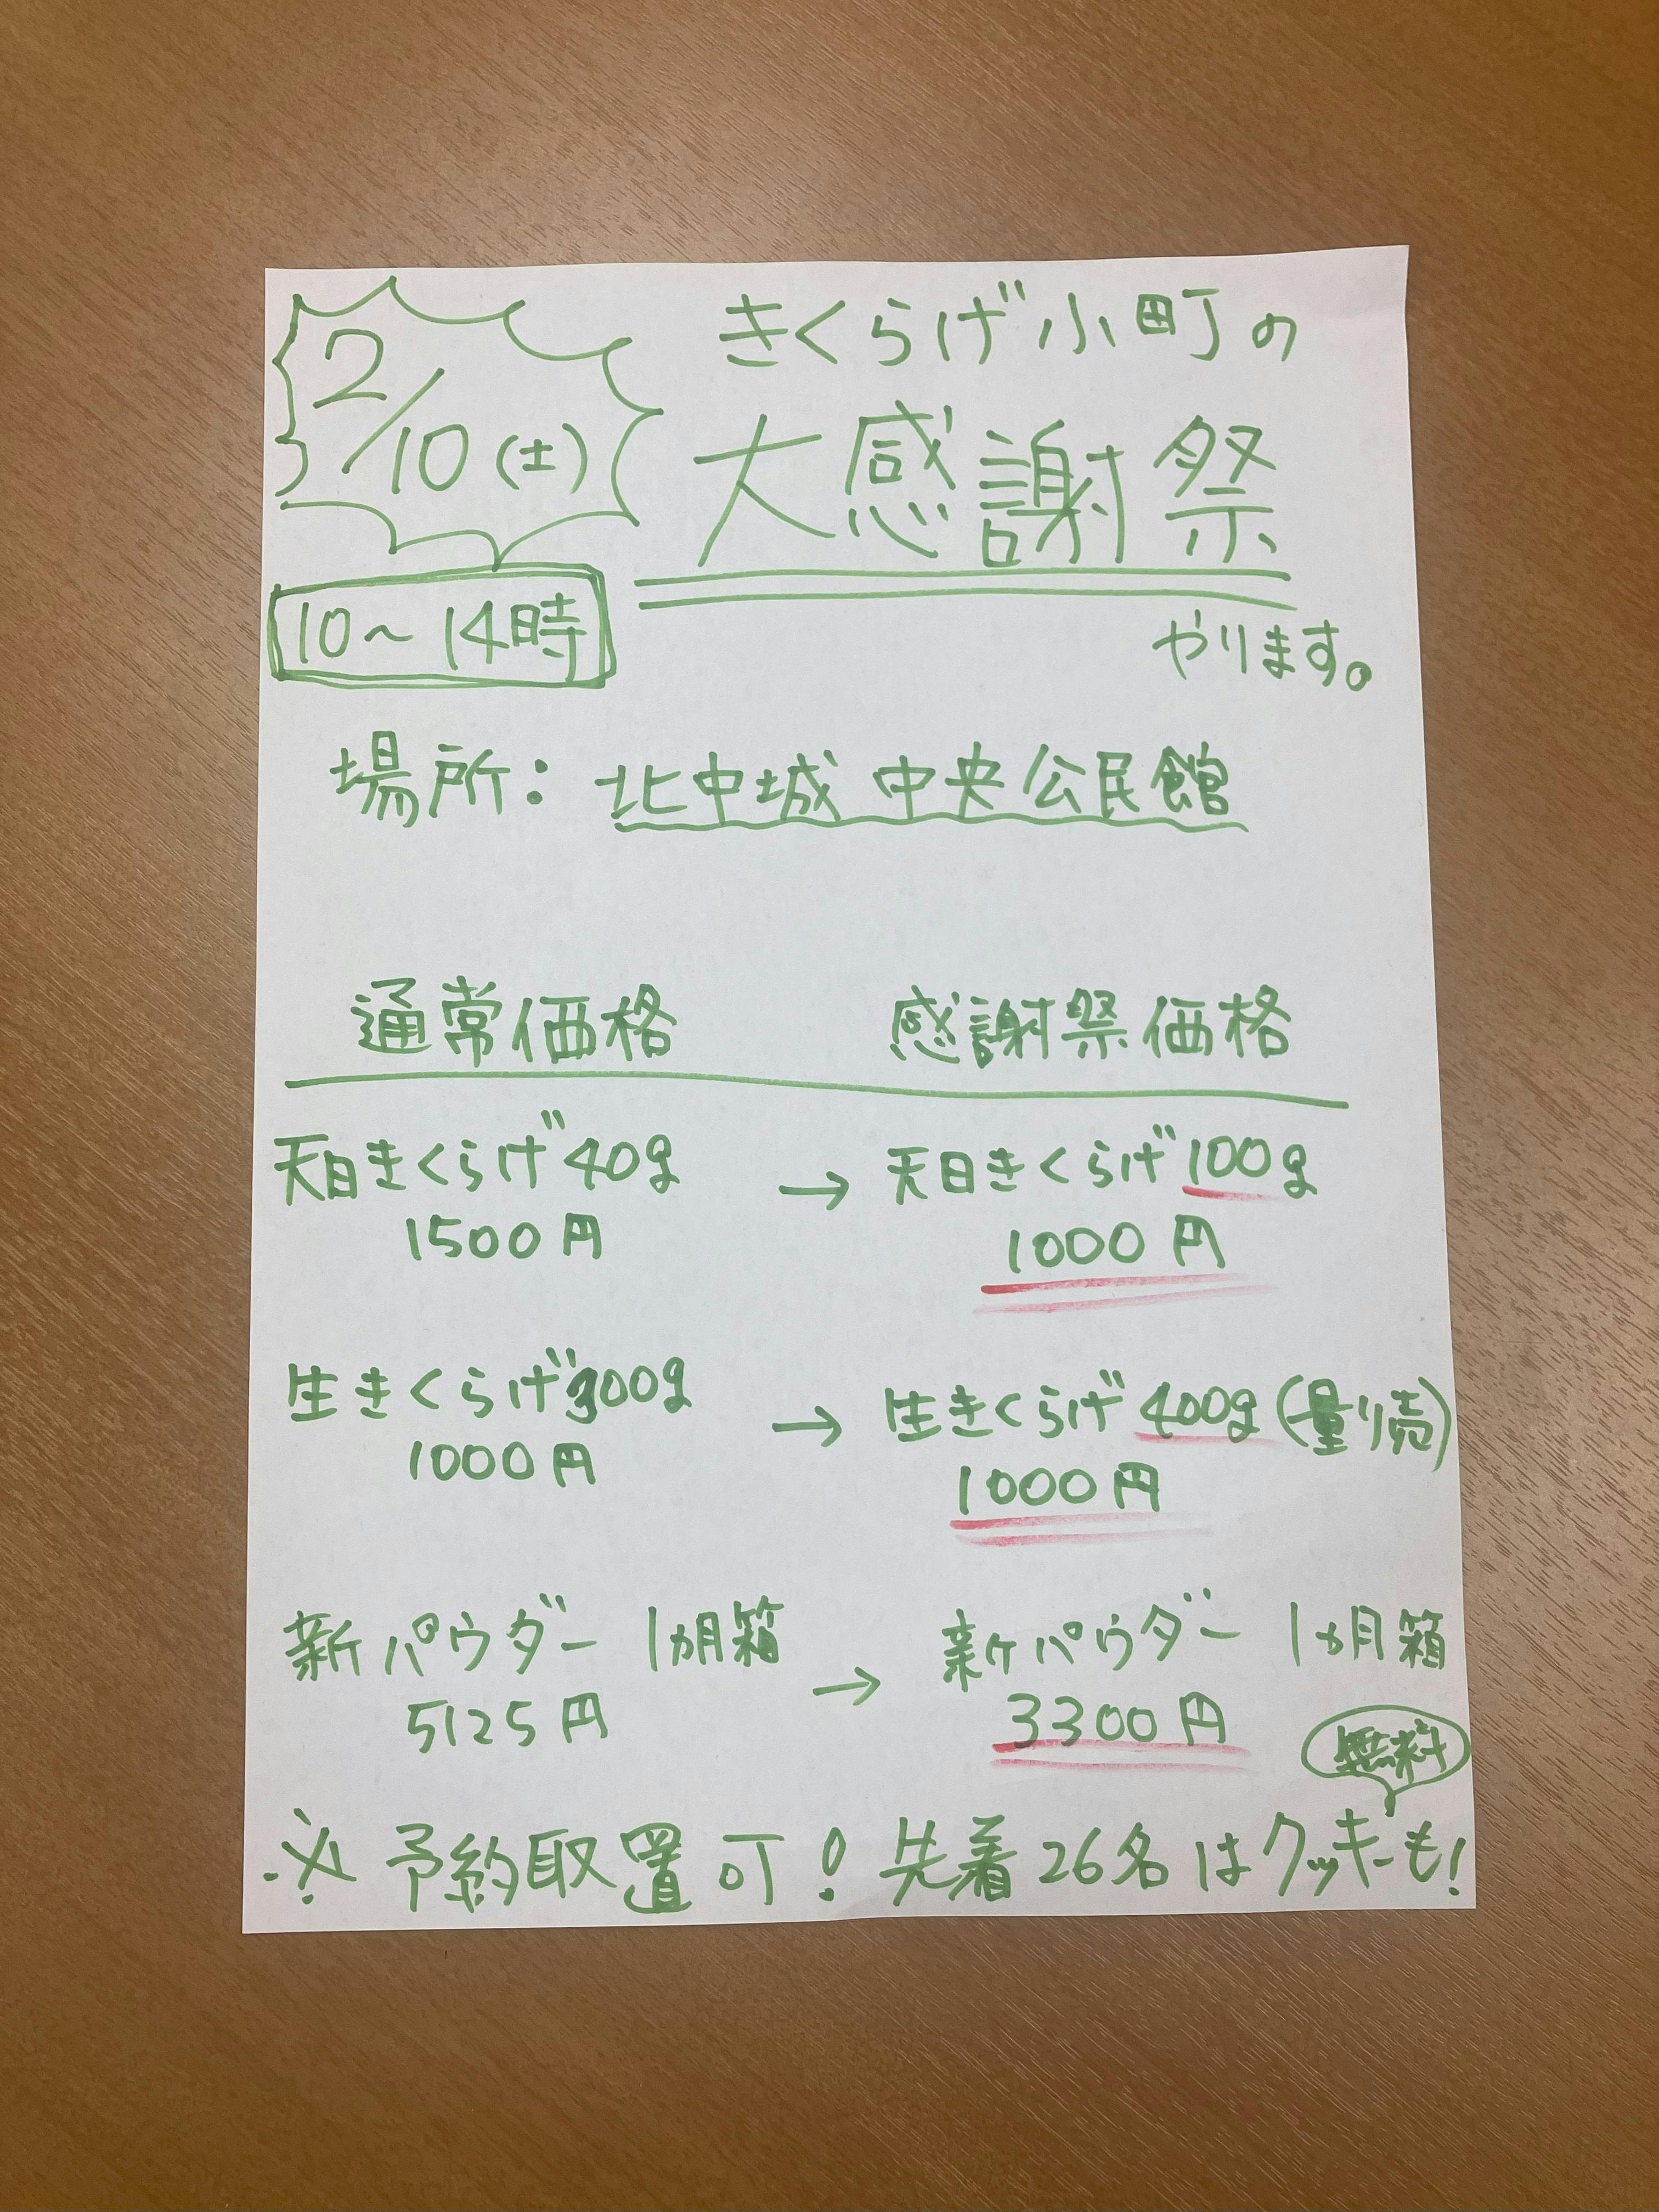 2/10(土)
10〜14時
きくらげ小町の
大感謝祭
やります。
場所：北中城 中央公民館
通常価格 感謝祭価格
天日きくらげ40g → 天日きくらげ100g
1500円 1000円
生きくらげ300g → 生きくらげ400g(量り売)
1000円 1000円
新パウダー 1ヵ月箱 → 新パウダー 1ヵ月箱
5125円 3300円
無料
※予約取置可！先着26名はクッキーも！